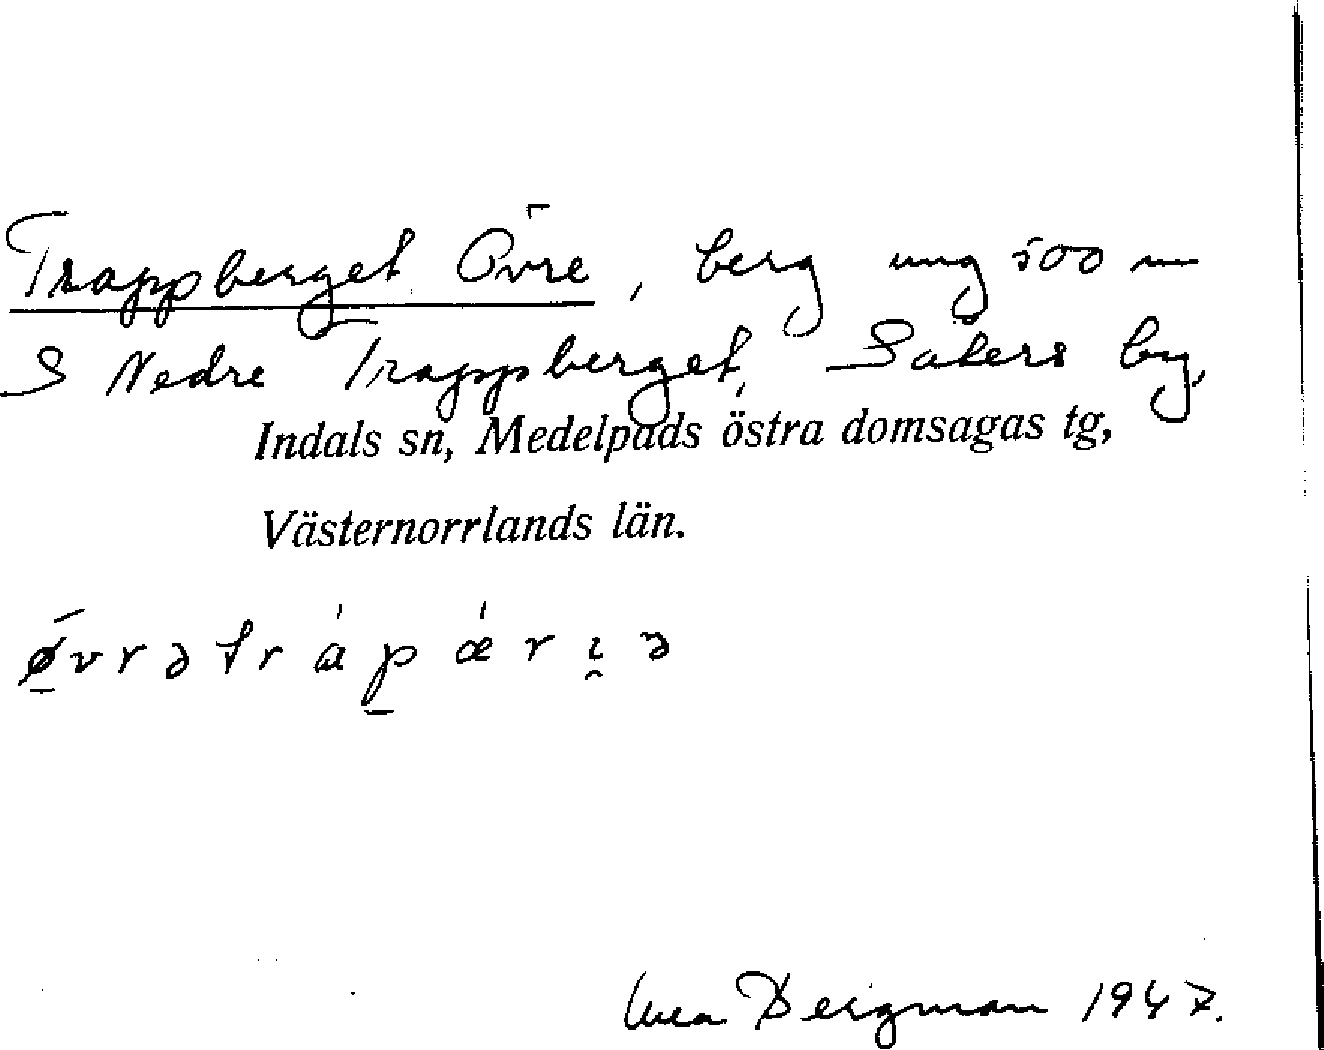 Trappberget Övre, berg ung 500 m
S Nedre Trappberget, Säters by,
Indals sn, Medelpads östra domsagas tg,
Västernorrlands län.
øvrətrápǽrɪ̯ə
Bergman 1947.